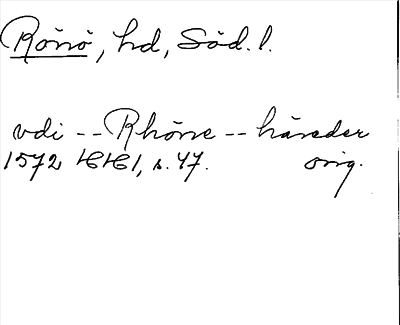 Rönö, hd, Söd. l.
vdi -- Rhöne -- häreder
1572 HH1, s. 47. orig.